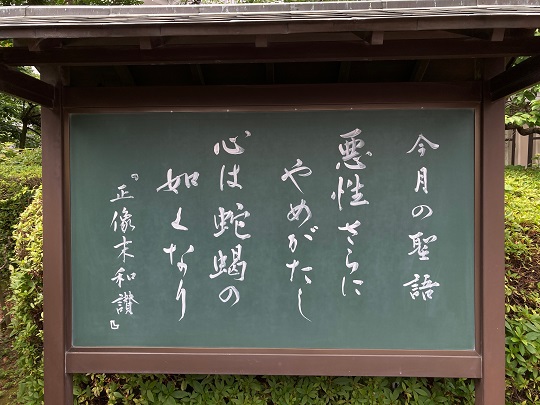 今月の聖語
悪性さらに
やめがたし
心は蛇蝎の
如くなり
『正像末和讃』